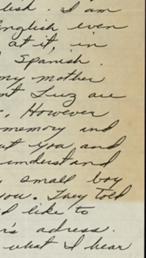 lish. I am
English even
at it, in
Spanish.
my mother
nt Luz are
. However
memory and
t you and
understand
small boy
you. They told
d like to
rs adress.
what I hear